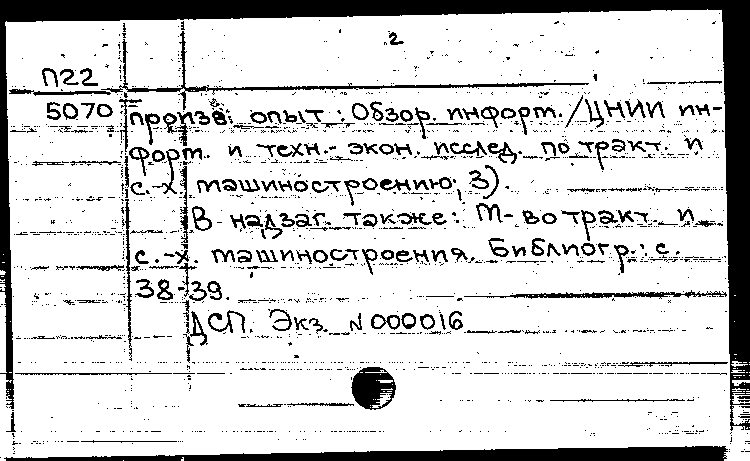 2
П22
5070
произв. опыт : Обзор. информ. / ЦНИИ ин-
форм. и техн.-экон. исслед. по тракт. и
с.-х. машиностроению; 3).
В надзаг. также: М-во тракт. и
с.-х. машиностроения. Библиогр.: с.
38-39.
ДСП. Экз. N 000016